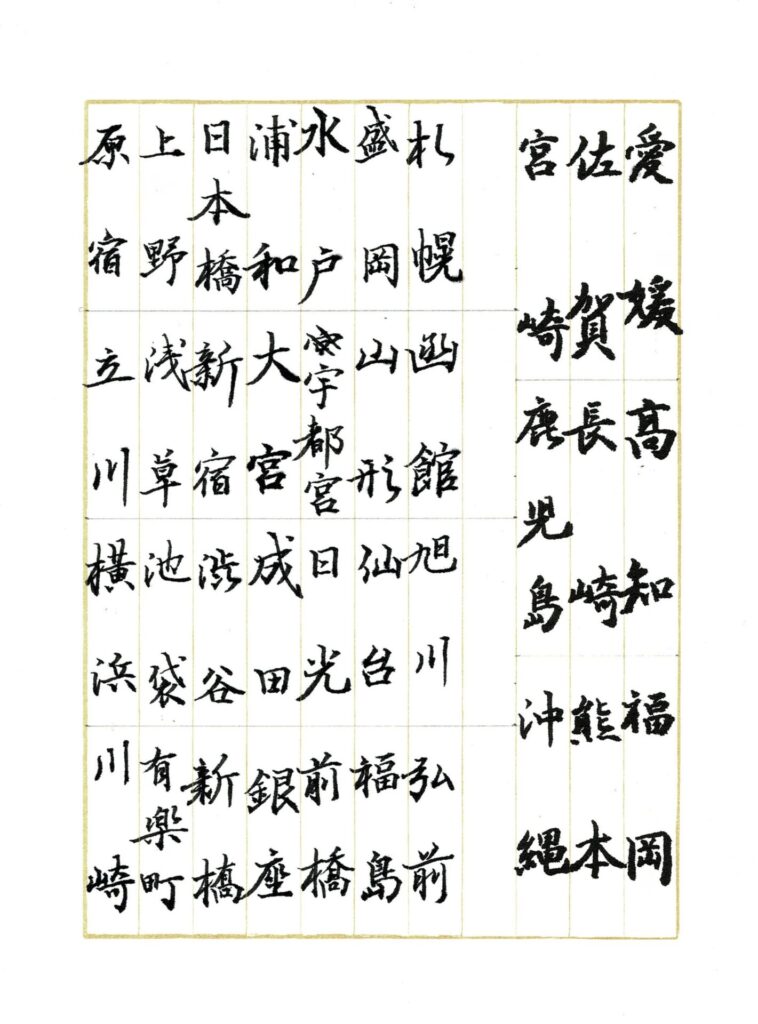 愛媛 高知 福岡
佐賀 長崎 熊本
宮崎 鹿児島 沖縄
札幌 函館 旭川 弘前
盛岡 山形 仙台 福島
水戸 宇都宮 日光 前橋
浦和 大宮 成田 銀座
日本橋 新宿 渋谷 新橋
上野 浅草 池袋 有楽町
原宿 立川 横浜 川崎